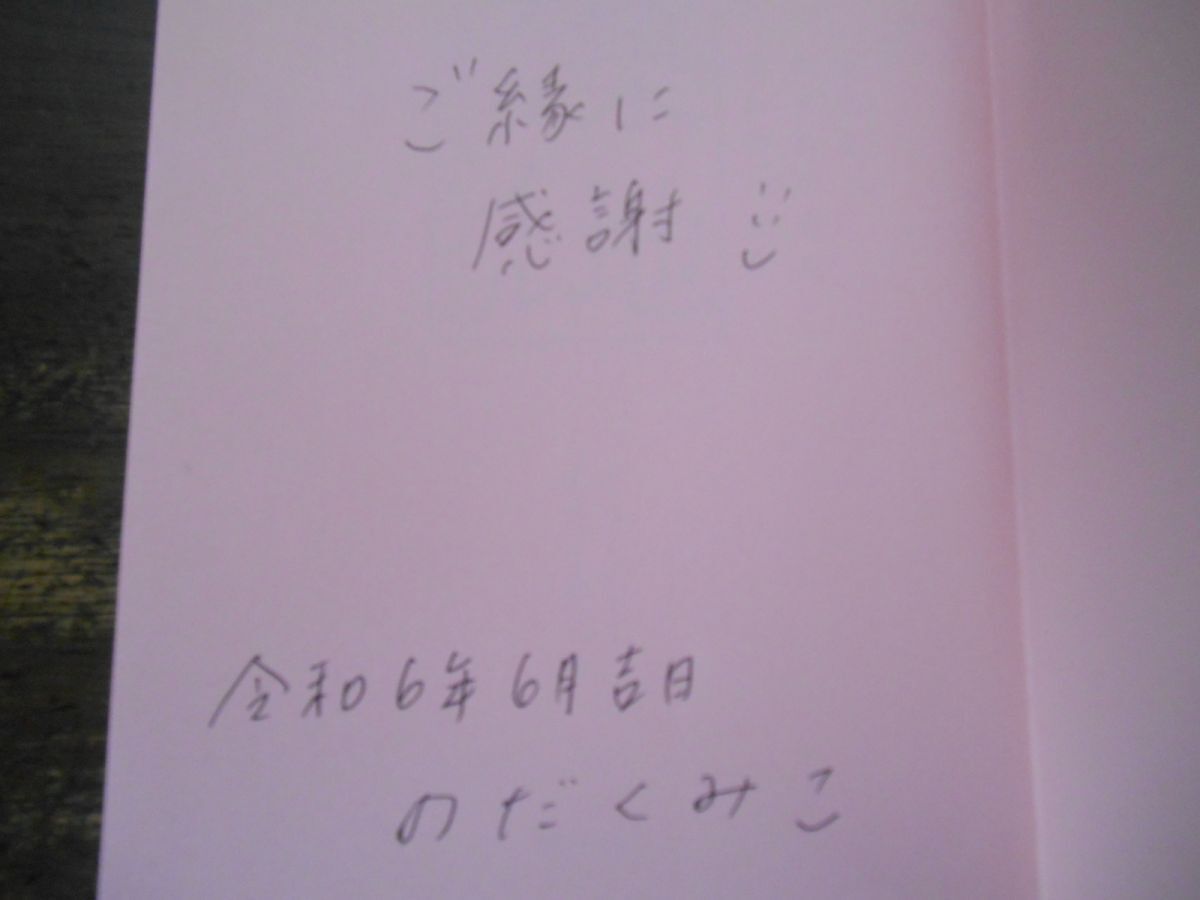 ご縁に
感謝
令和6年6月吉日
のだくみこ